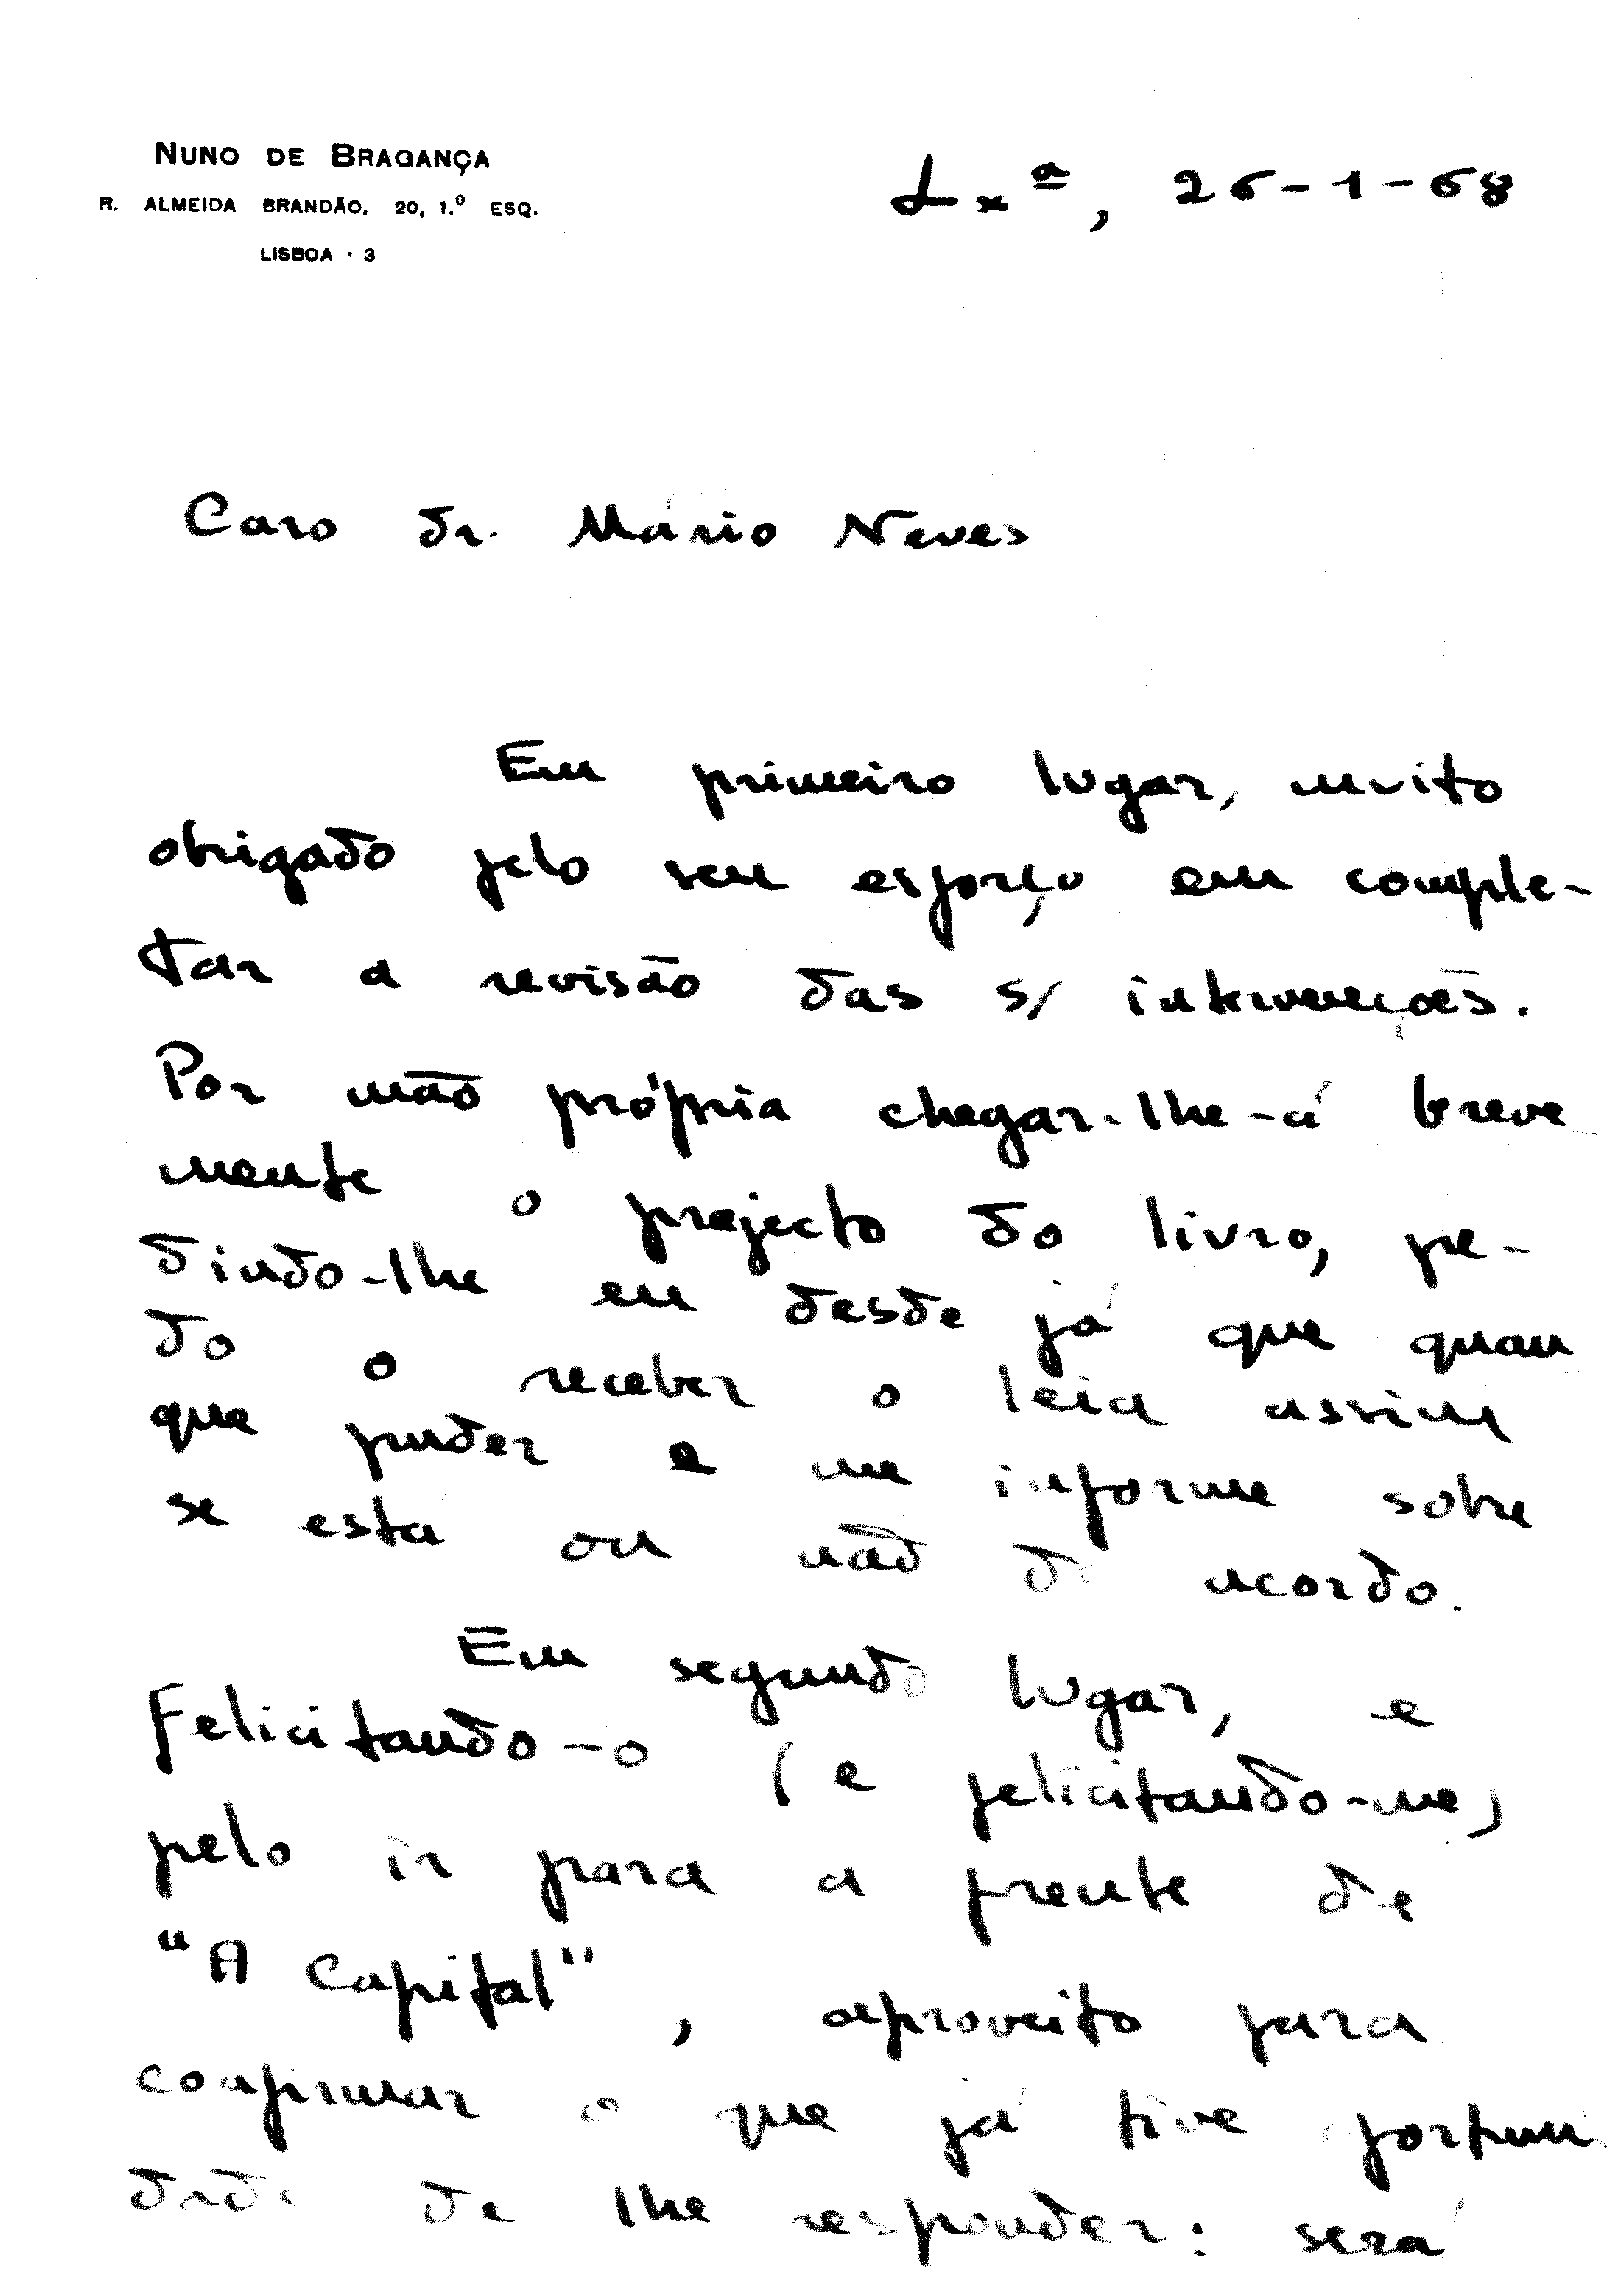 NUNO DE BRAGANÇA
R. ALMEIDA BRANDÃO, 20, 1.º ESQ.
LISBOA · 3
Lxª, 26-1-68
Caro dr. Mário Neves
Em primeiro lugar, muito
obrigado pelo seu esforço em comple-
tar a revisão das s/ intervenções.
Por mão própria chegar-lhe-á breve
mente o projecto do livro, pe-
dindo-lhe eu desde já que quan
do o receber o leia assim
que puder e me informe sobre
se está ou não de acordo.
Em segundo lugar, e
felicitando-o (e felicitando-me)
pelo ir para a frente de
"A Capital", aproveito para
confirmar o que já tive oportuni
dade de lhe responder: será